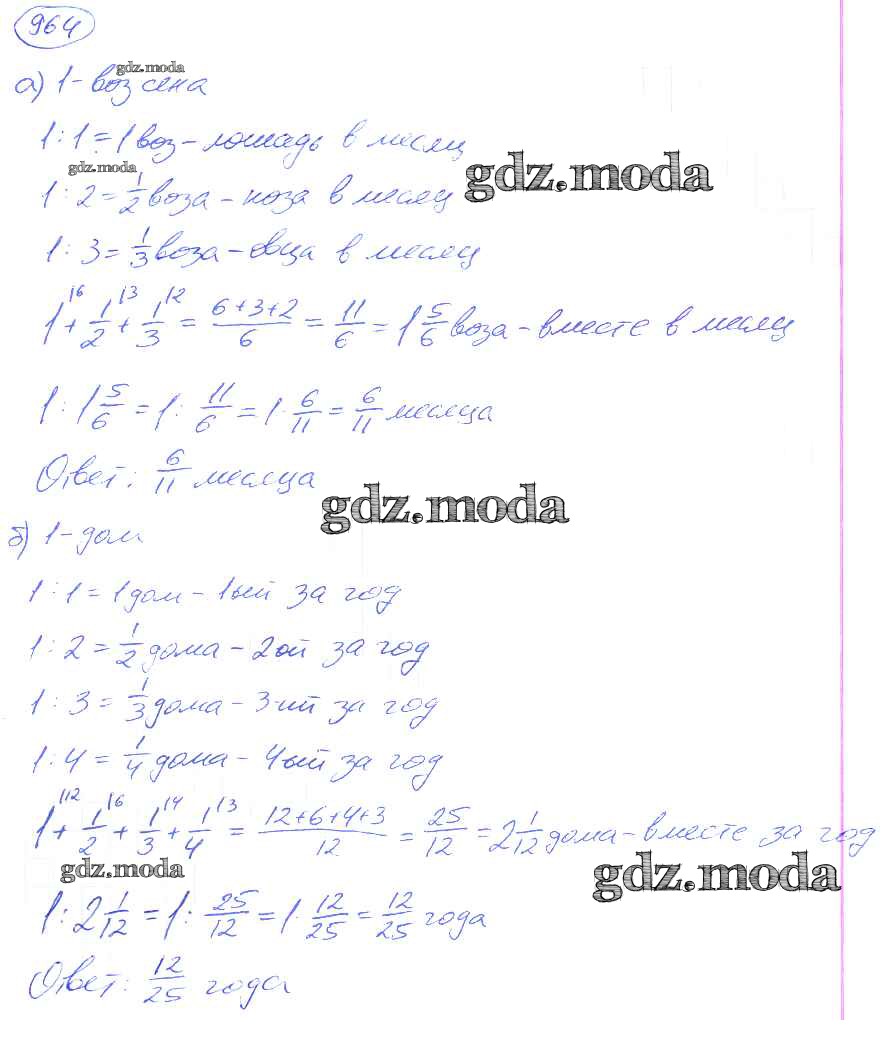 964
gdz.moda
а) 1 - воз сена
1 : 1 = 1 воз - лошадь в месяц
gdz.moda
gdz.moda
1 : 2 = 1/2 воза - коза в месяц
1 : 3 = 1/3 воза - овца в месяц
1\6 + 1/2\3 + 1/3\2 = (6+3+2)/6 = 11/6 = 1 5/6 воза - вместе в месяц
1 : 1 5/6 = 1 : 11/6 = 1 · 6/11 = 6/11 месяца
Ответ: 6/11 месяца
gdz.moda
б) 1 - дом
1 : 1 = 1 дом - 1ый за год
1 : 2 = 1/2 дома - 2ой за год
1 : 3 = 1/3 дома - 3-ий за год
1 : 4 = 1/4 дома - 4ый за год
1\12 + 1/2\6 + 1/3\4 + 1/4\3 = (12+6+4+3)/12 = 25/12 = 2 1/12 дома - вместе за год
gdz.moda
gdz.moda
1 : 2 1/12 = 1 : 25/12 = 1 · 12/25 = 12/25 года
Ответ: 12/25 года